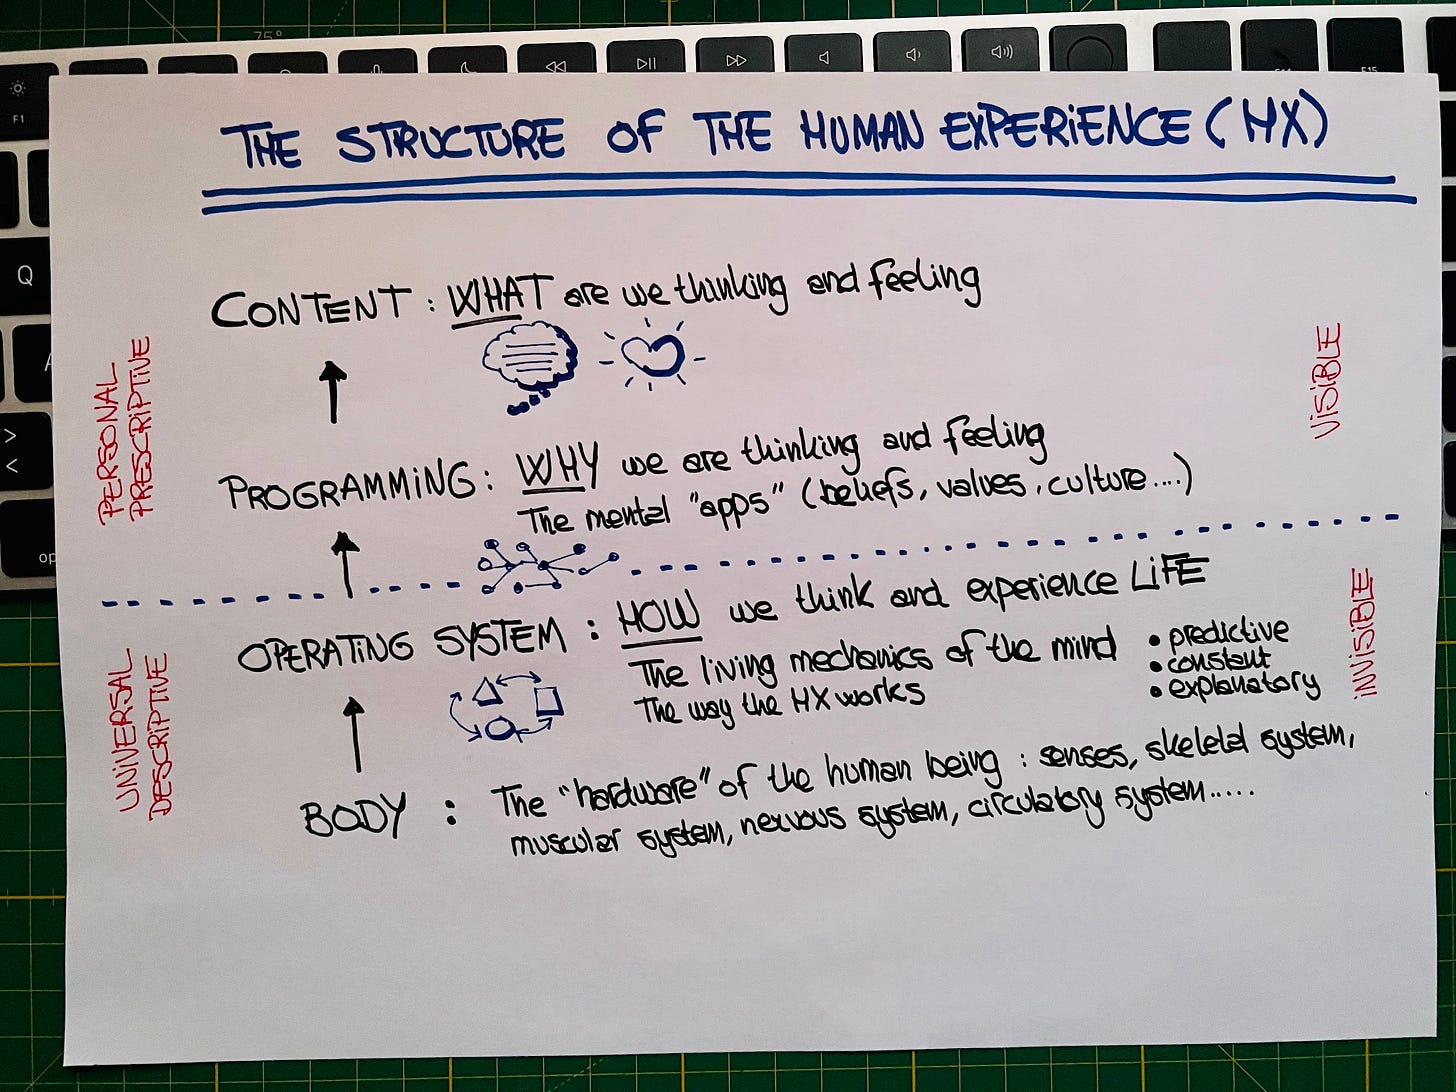 75°
F1
F15
Q
A
>
<
op
THE STRUCTURE OF THE HUMAN EXPERIENCE (HX)
CONTENT : WHAT are we thinking and feeling
PERSONAL
PRESCRIPTIVE
VISIBLE
PROGRAMMING : WHY we are thinking and feeling
The mental "apps" (beliefs, values, culture....)
OPERATING SYSTEM : HOW we think and experience LIFE
The living mechanics of the mind
The way the HX works
• predictive
• constant
• explanatory
UNIVERSAL
DESCRIPTIVE
INVISIBLE
BODY : The "hardware" of the human being : senses, skeletal system,
muscular system, nervous system, circulatory system.....